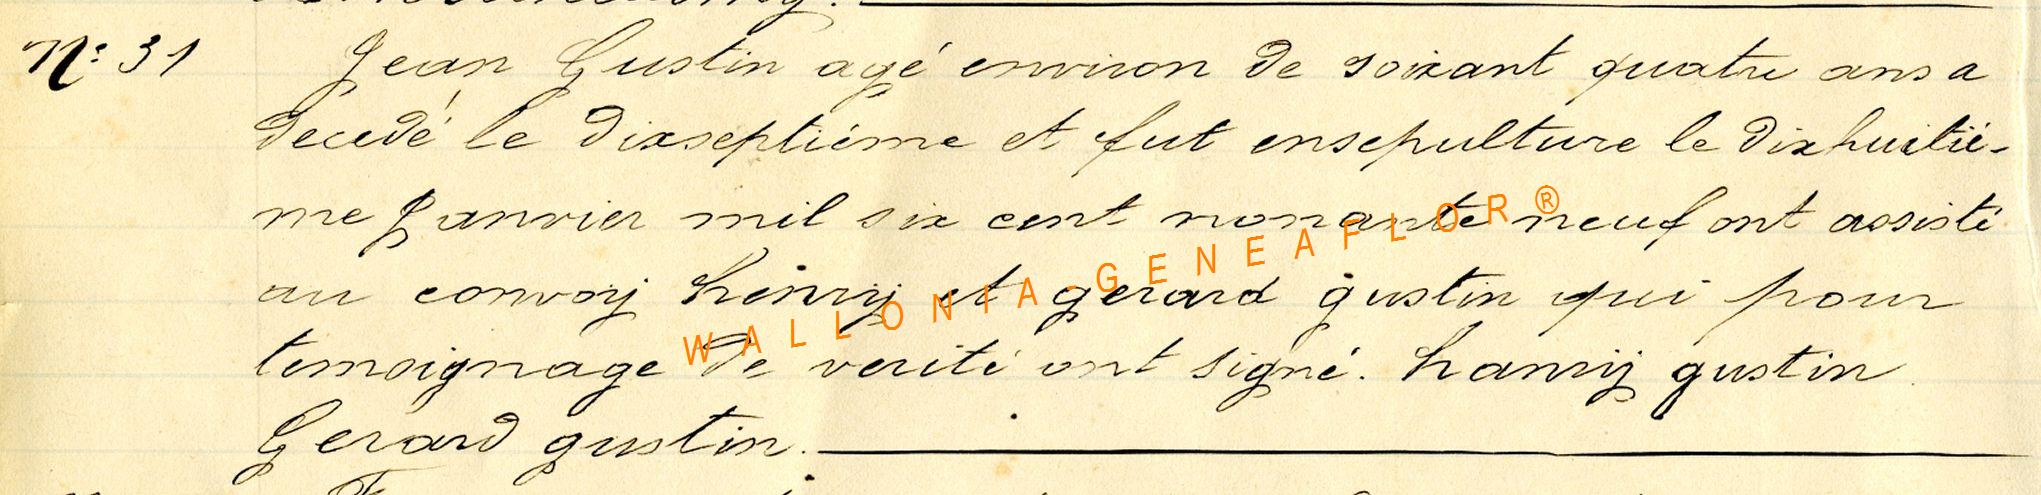 N.° 31 Jean Gustin agé environ de soixant quatre ans a
decedé le dixseptiéme et fut ensepulture le dixhuitié-
me Janvier mil six cent nonante neuf ont assisté
au convoij henrij et gerard gustin qui pour
WALLONIA-GENEAFLOR®
temoignage de verité ont signé. hanrij gustin
Gerard gustin.